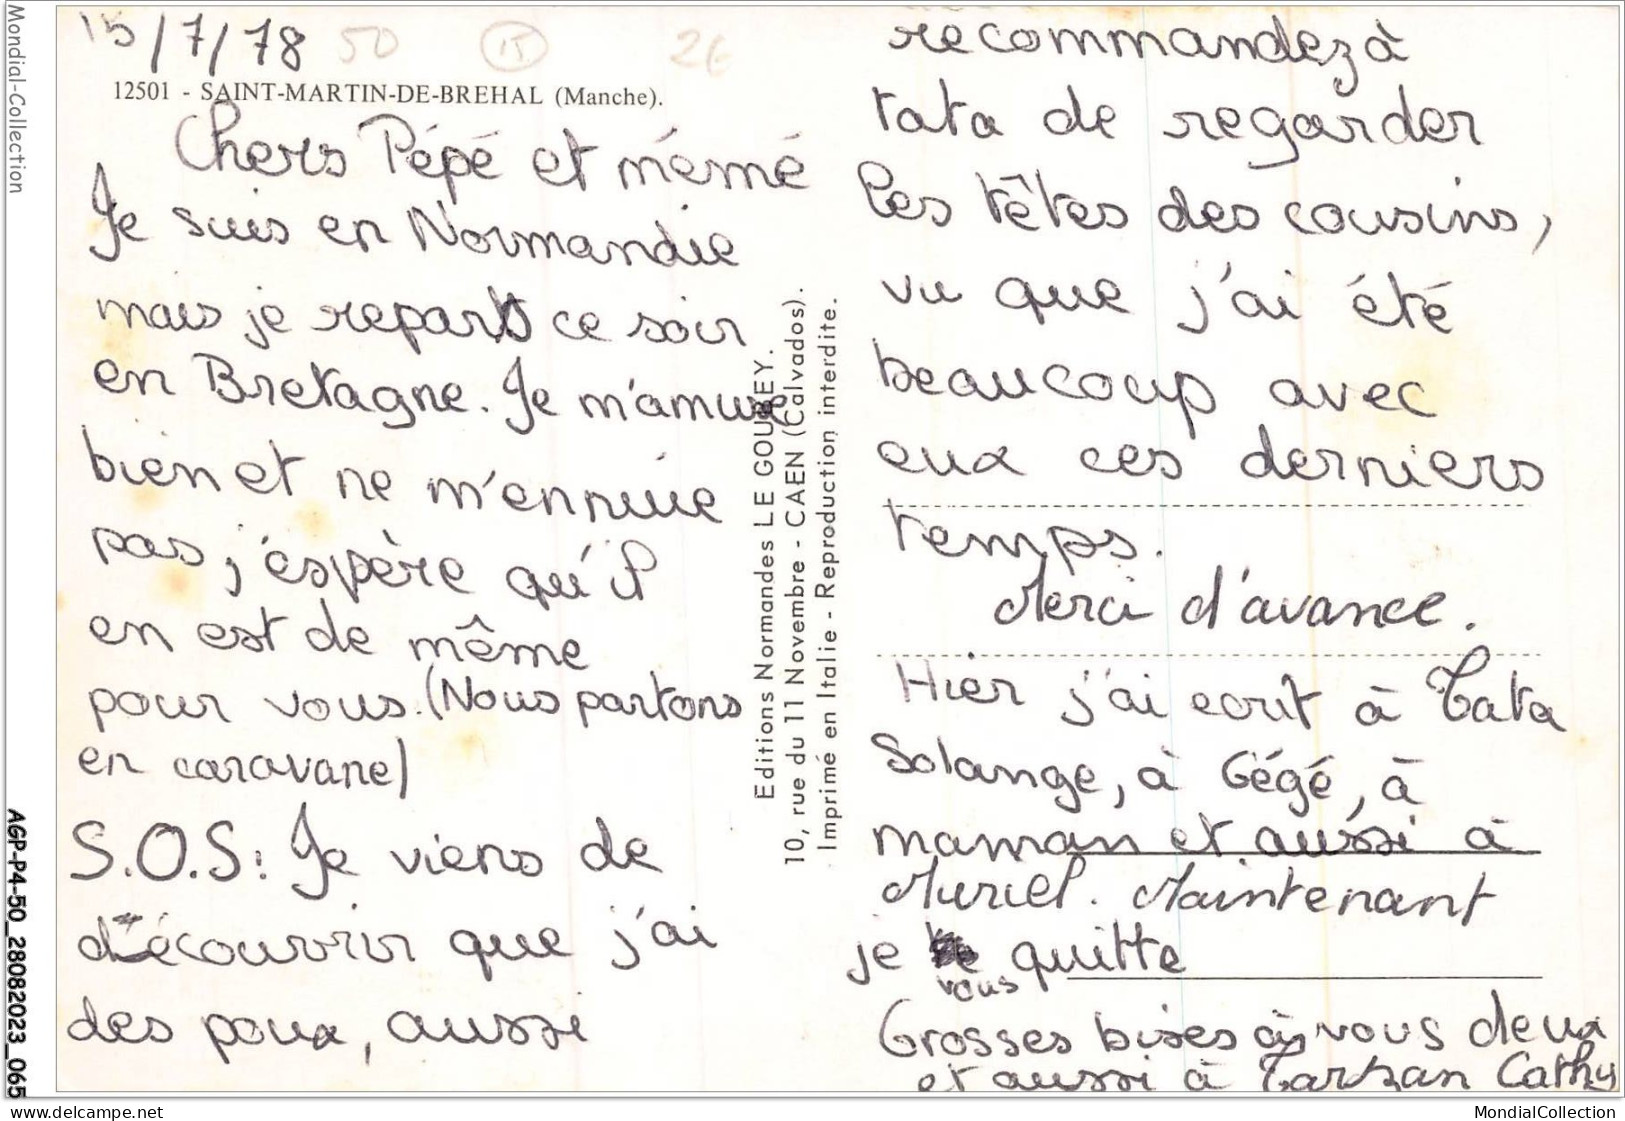 15/7/78
50
15
2€
12501 - SAINT-MARTIN-DE-BREHAL (Manche).
Chers Pépé et mémé
Je suis en Normandie
mais je repars ce soir
en Bretagne. Je m'amuse
bien et ne m'ennuie
pas, j'éspère qu'il
en est de même
pour vous. (Nous partons
en caravane)
S.O.S: Je viens de
découvrir que j'ai
des poux, aussi
recommandez à
tata de regarder
les têtes des cousins,
vu que j'ai été
beaucoup avec
eux ces derniers
temps.
Merci d'avance.
Hier j'ai ecrit à Tata
Solange, à Gégé, à
maman et aussi à
Muriel. Maintenant
je vous quitte
Grosses bises à vous deux
et aussi à Tarzan Cathy
Editions Normandes LE GOUBEY.
10, rue du 11 Novembre - CAEN (Calvados).
Imprimé en Italie - Reproduction interdite.
Mondial-Collection
AGP-P4-50_28082023_065
MondialCollection